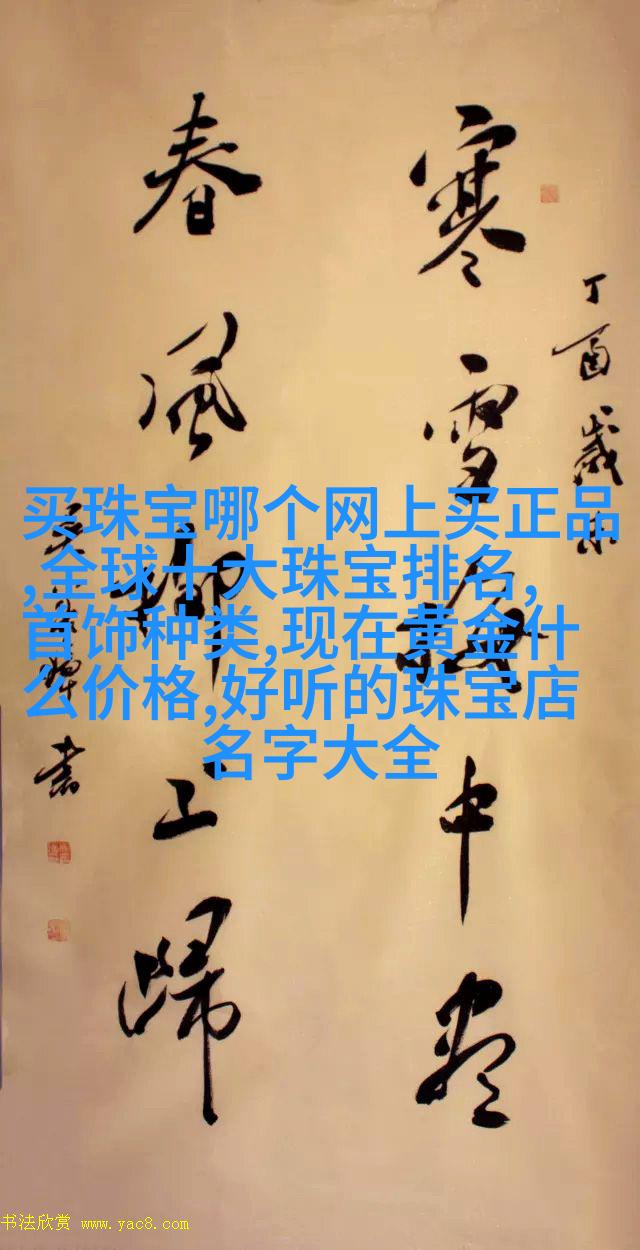 寒雪梅中尽
春風柳上歸
丁酉歲末
买珠宝哪个网上买正品
,全球十大珠宝排名,
首饰种类,现在黄金什
么价格,好听的珠宝店
名字大全
书法欣赏 www.yac8.com